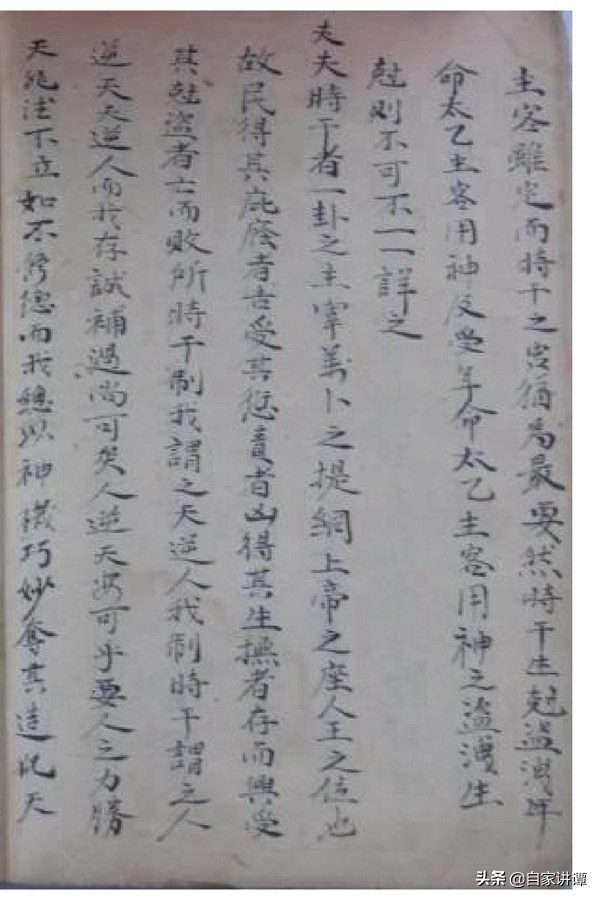 主客雖定而時干之宫猶為最要然時干生尅盜洩年
命太乙主客用神反受年命太乙主客用神之盜洩生
尅則不可不一一詳之
夫夫時干者一卦之主宰萬卜之提綱上帝之座人王之位也
故民得其庇廕者吉受其愆責者凶得其生撫者存而興受
其尅盜者亡而敗所時干制我謂之天逆人我制時干謂之人
逆天天逆人而我存誠補過尚可癸人逆天安可乎要人之力勝
天能法不立如不修德而我總以神機巧妙奪其造化天
头条 @自家讲谭